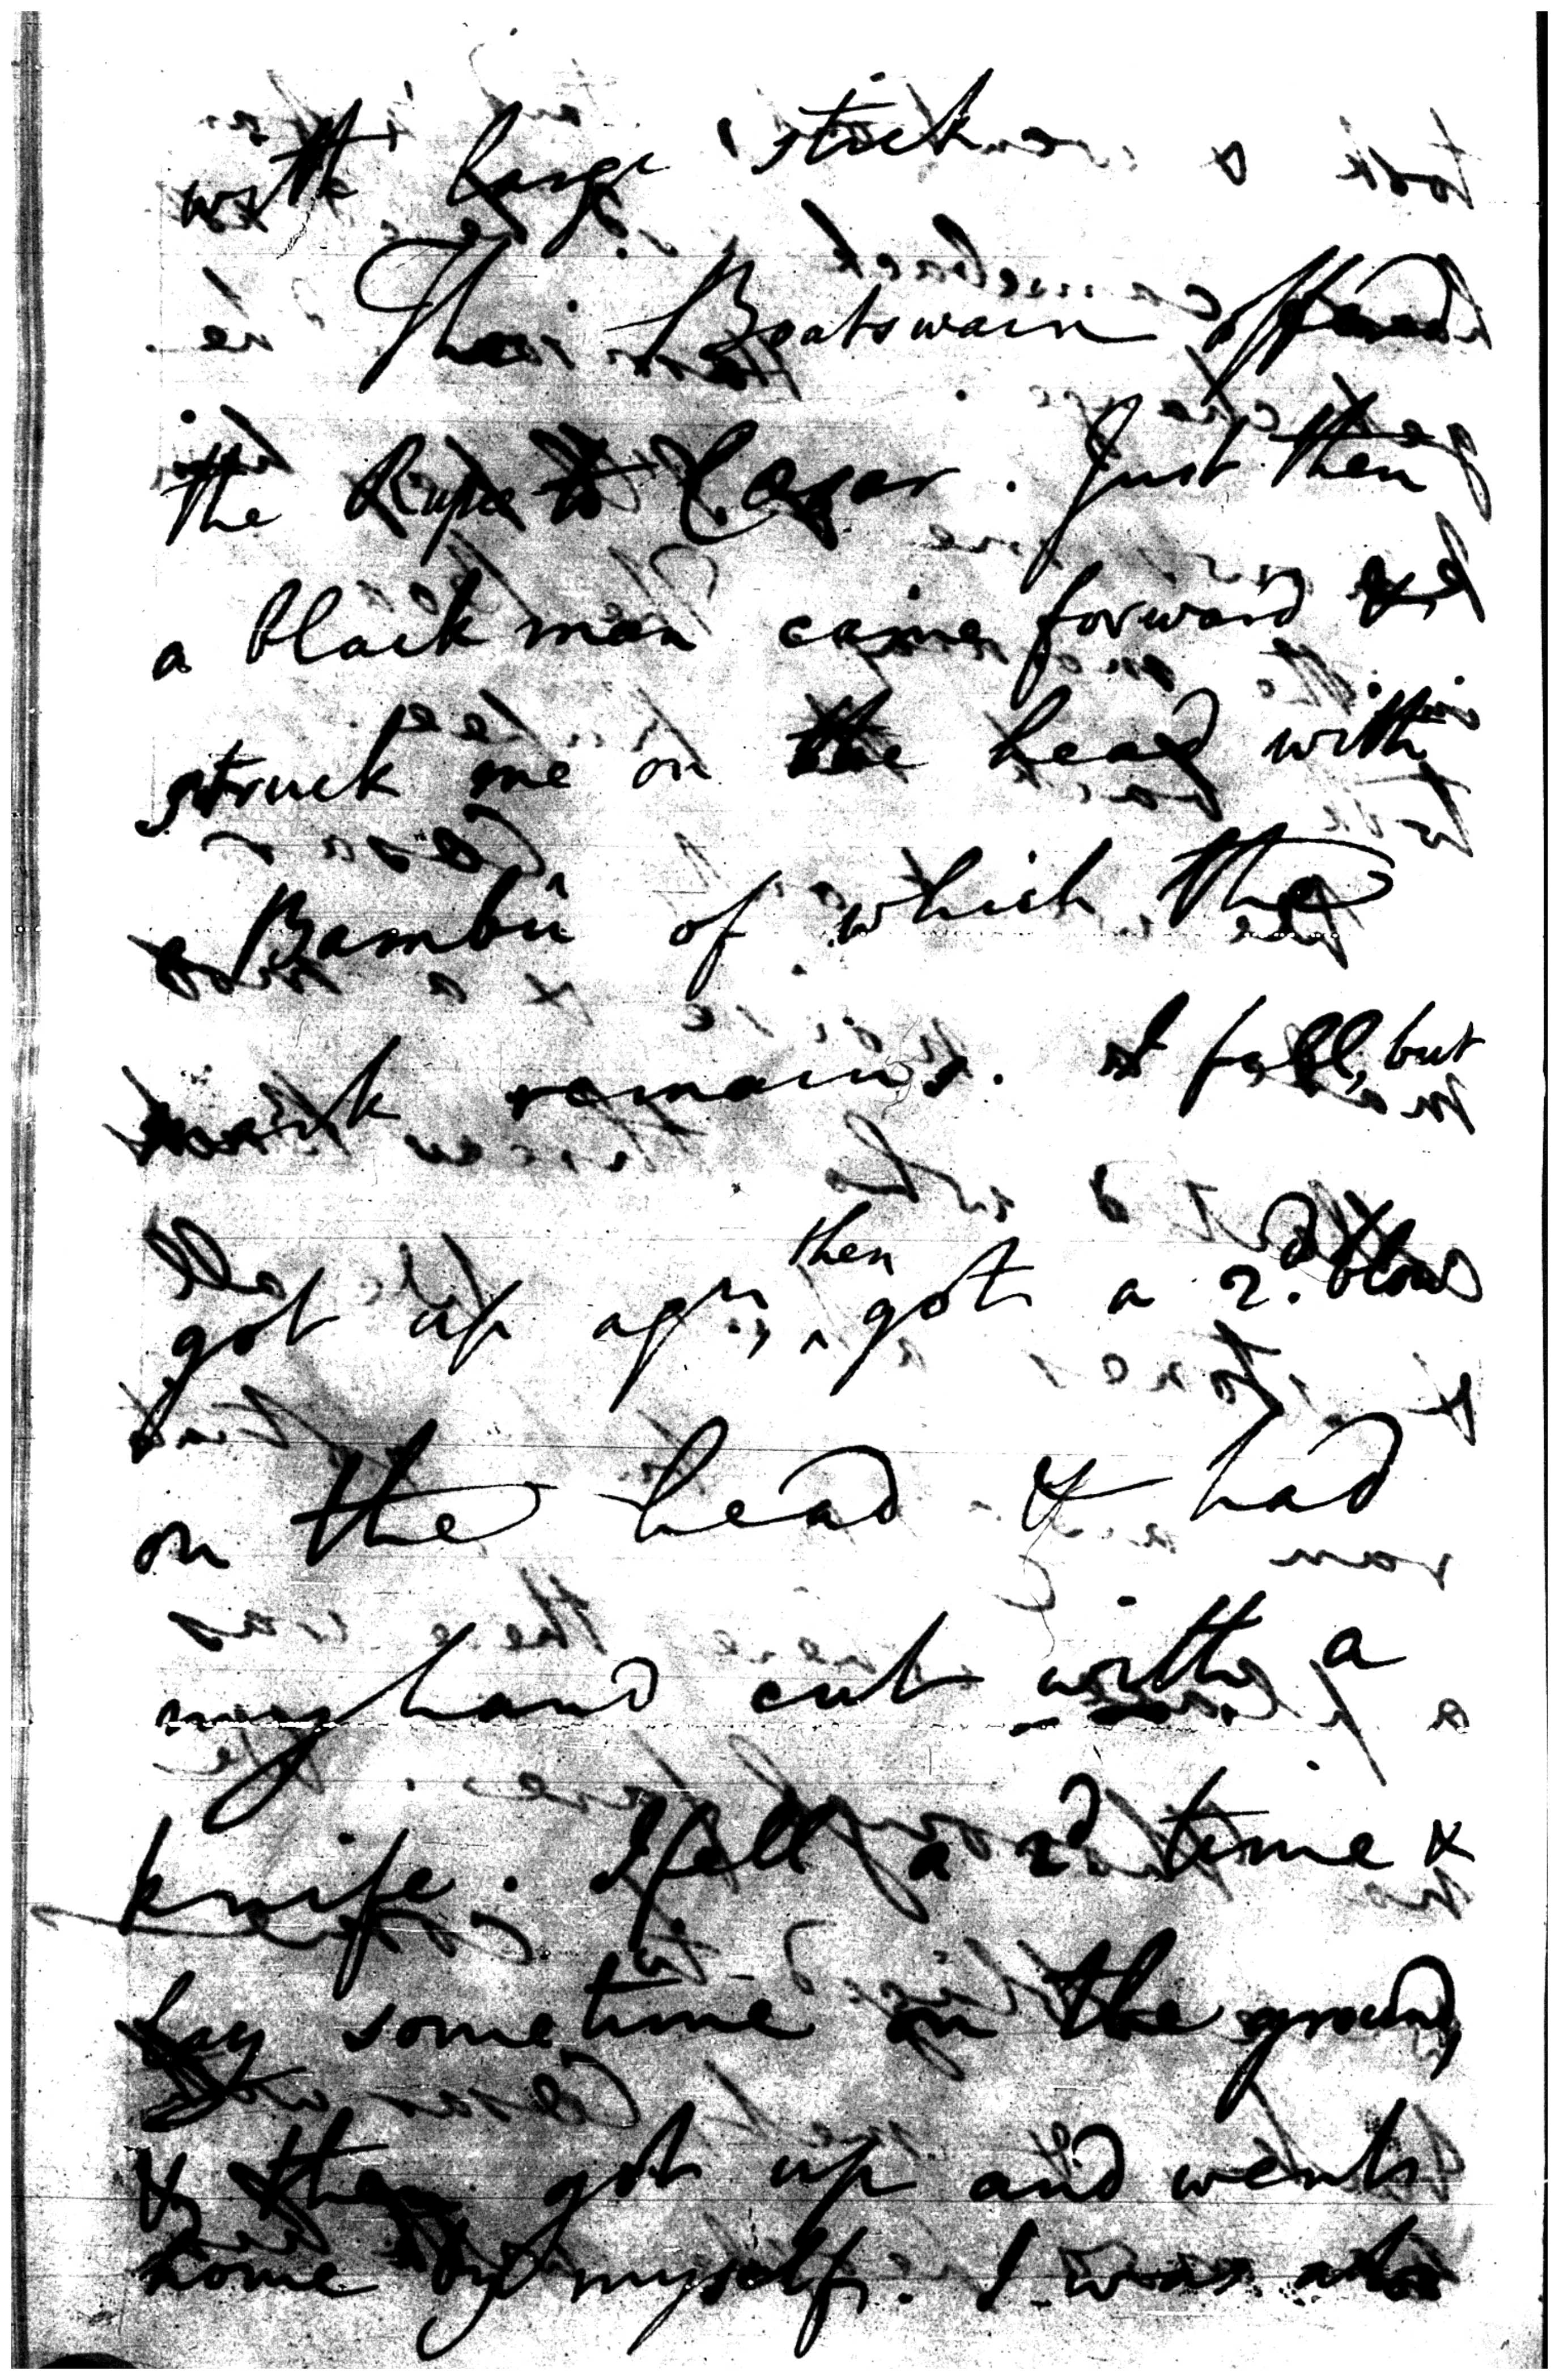 with large stick
The Boatswain offered
the Rupee to Cæsar. Just then
a black man came forward &
struck me on the head with
a Bambū of which the
mark remains. I fell, but
got up agn; then got a 2d. blow
on the head & had
my hand cut with a
knife. I fell a 2d time &
lay sometime on the ground,
& then got up and went
home by myself. I was also